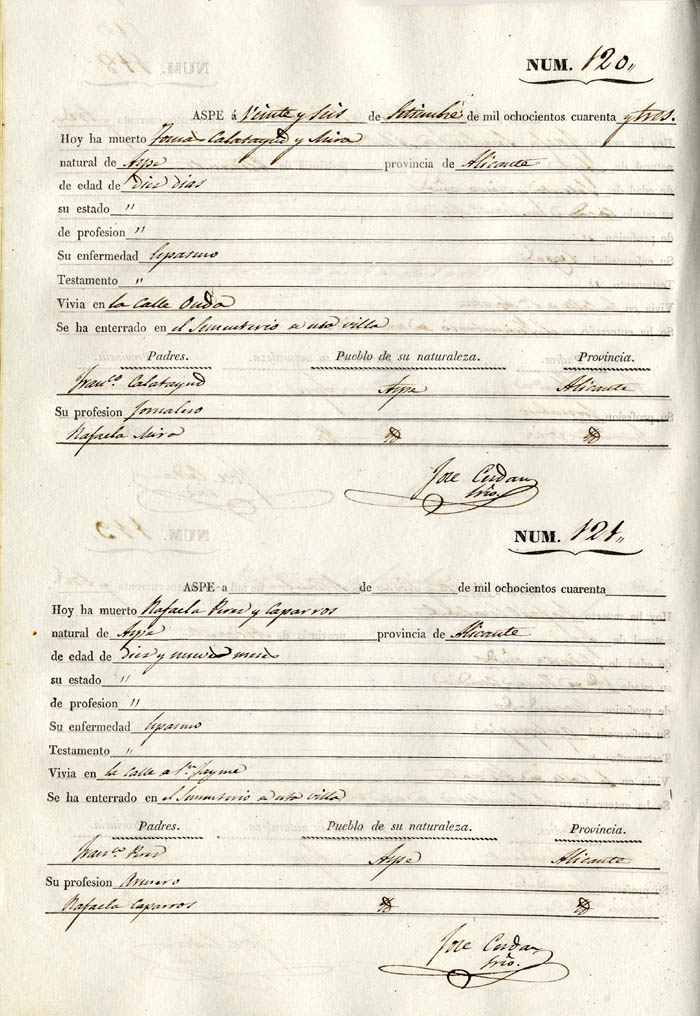 NUM. 120,,
ASPE á Veinte y seis de Setiembre de mil ochocientos cuarenta y tres.
Hoy ha muerto Tomás Calatayud y Miro
natural de Aspe provincia de Alicante
de edad de Diez dias
su estado "
de profesion "
Su enfermedad Espasmo
Testamento "
Vivia en la Calle Onda
Se ha enterrado en el Sementerio de esta villa
Padres. Pueblo de su naturaleza. Provincia.
Franco. Calatayud Aspe Alicante
Su profesion Jornalero
Rafaela Miro id id
Jose Cerdan
Srio.
NUM. 121,,
ASPE a de de mil ochocientos cuarenta
Hoy ha muerto Rafaela Perez y Caparros
natural de Aspe provincia de Alicante
de edad de Diez y nueve meses
su estado "
de profesion "
Su enfermedad Espasmo
Testamento "
Vivia en la Calle de Sn. Jayme
Se ha enterrado en el Sementerio de esta villa
Padres. Pueblo de su naturaleza. Provincia.
Franco. Perez Aspe Alicante
Su profesion Arriero
Rafaela Caparros id id
Jose Cerdan
Srio.